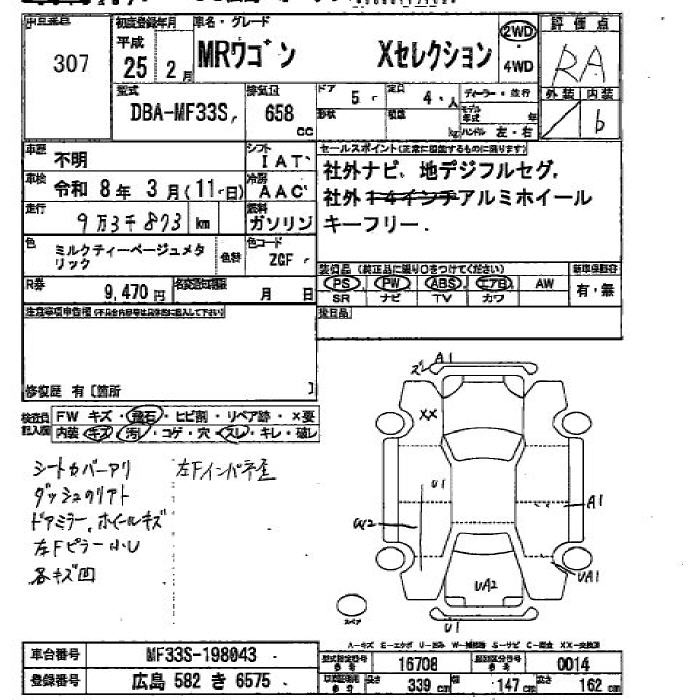 出品番号 初度登録年月 車名・グレード 2WD 評価点
307 平成 MRワゴン Xセレクション ・ RA
25 2月 4WD
型式 排気量 ドア 定員 ディーラー・並行 外装 内装
DBA-MF33S 658 5 4人 モデル年式 年
cc 形状 積載 kg ハンドル 左・右 b
車歴 不明 シフト IAT セールスポイント(正常に機能するものに限ります)
車検 令和 8年 3月(11日) 冷房 AAC 社外ナビ、地デジフルセグ、
走行 9万3千873 km 燃料 ガソリン 社外14インチアルミホイール
キーフリー.
色 ミルクティーベージュメタリック 色替 色コード ZGF
装備品(純正品に限り○をつけてください) 新車保証書
R券 9,470円 名変通知期限 月 日 PS PW ABS エアB AW 有・無
SR ナビ TV カワ
注意事項申告欄(不具合内容等は具体的に記入して下さい) 後日品
修復歴 有〔箇所 〕
検査員記入欄 FW キズ・飛石・ヒビ割・リペア跡・×要
内装 キズ・汚レ・コゲ・穴・スレ・キレ・破レ
シートカバーアリ 左Fインパネ歪
ダッシュのリアト
ドアミラー、ホイールキズ
左Fピラー小U
各キズ凹
ズレ A1
XX
U1
A1
W2
UA1
UA2
U1
スペア
A-キズ E-エクボ U-凹み W-補修跡 S-サビ C-腐食 XX-交換済
車台番号 MF33S-198043 型式指定番号 16708 類別区分番号 0014
登録番号 広島 582 き 6575 長さ 339 cm 幅 147 cm 高さ 162 cm